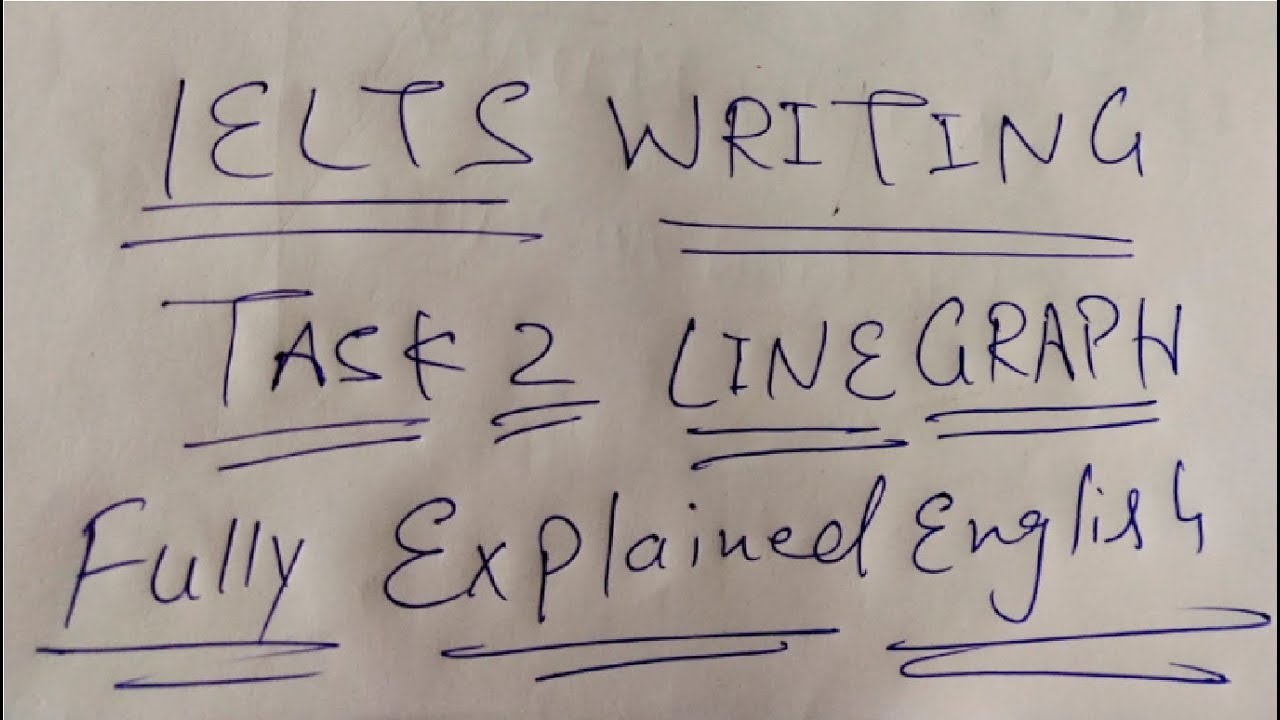 IELTS WRITING
TASK 2 LINE GRAPH
Fully Explained English